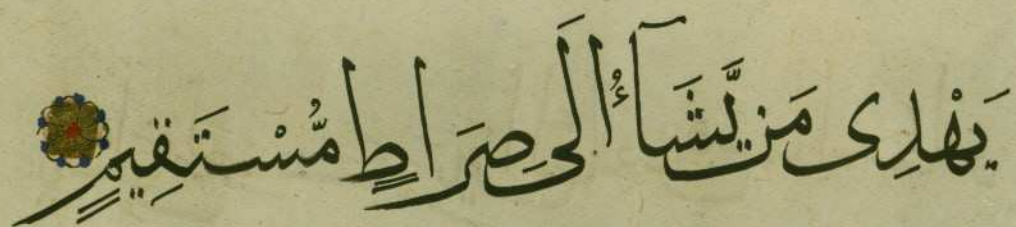 يَهْدِى مَن يَّشَآءُ اِلَى صِرَاطٍ مُّسْتَقِيمٍ